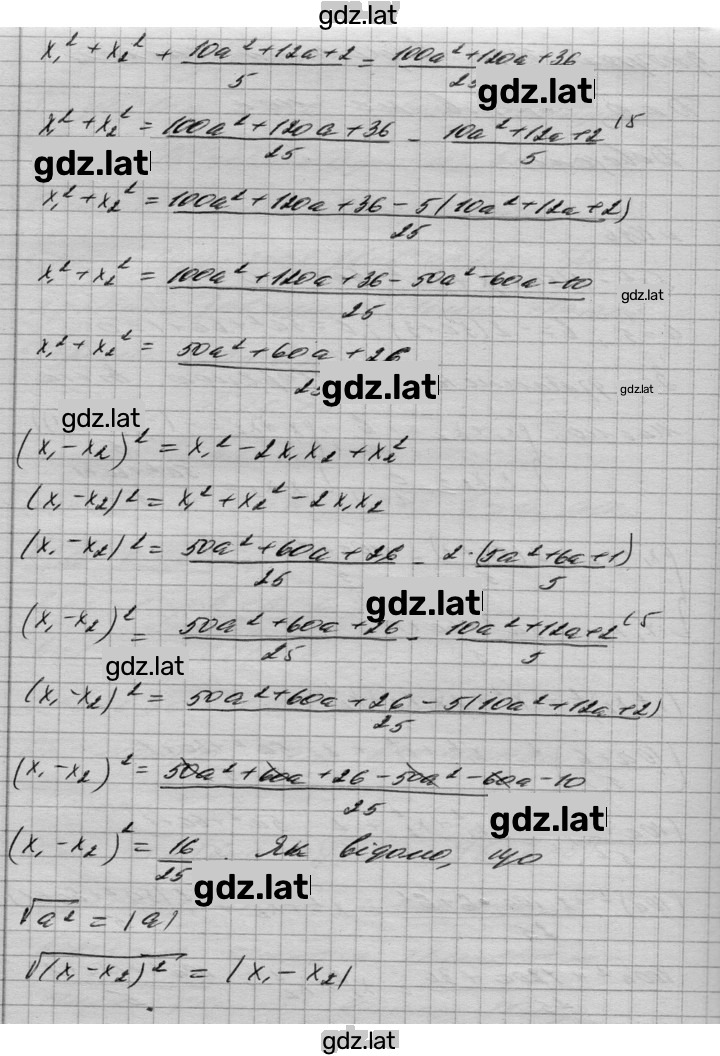 gdz.lat
x₁² + x₂² + (10a² + 12a + 2)/5 = (100a² + 120a + 36)/25
gdz.lat
x₁² + x₂² = (100a² + 120a + 36)/25 - (10a² + 12a + 2)/5 (5
gdz.lat
x₁² + x₂² = (100a² + 120a + 36 - 5(10a² + 12a + 2))/25
x₁² + x₂² = (100a² + 120a + 36 - 50a² - 60a - 10)/25
gdz.lat
x₁² + x₂² = (50a² + 60a + 26)/25
gdz.lat
gdz.lat
gdz.lat
(x₁ - x₂)² = x₁² - 2x₁x₂ + x₂²
(x₁ - x₂)² = x₁² + x₂² - 2x₁x₂
(x₁ - x₂)² = (50a² + 60a + 26)/25 - 2·(5a² + 6a + 1)/5
gdz.lat
(x₁ - x₂)² = (50a² + 60a + 26)/25 - (10a² + 12a + 2)/5 (5
gdz.lat
(x₁ - x₂)² = (50a² + 60a + 26 - 5(10a² + 12a + 2))/25
(x₁ - x₂)² = (50a² + 60a + 26 - 50a² - 60a - 10)/25
gdz.lat
(x₁ - x₂)² = 16/25. Як відомо, що
gdz.lat
√a² = |a|
√(x₁ - x₂)² = |x₁ - x₂|
gdz.lat